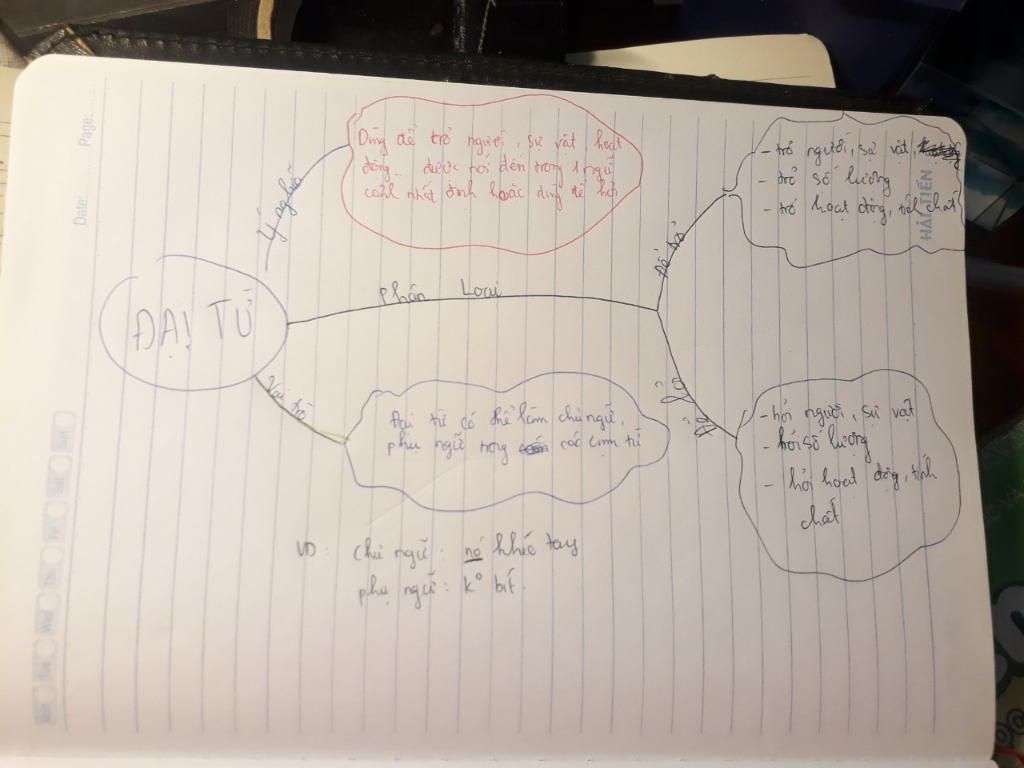 Page:
Date:
HẢI TIẾN
Ý nghĩa
Dùng để trỏ người, sự vật, hoạt
động... được nói đến trong 1 ngữ
cảnh nhất định hoặc dùng để hỏi
ĐẠI TỪ
phân Loại
Để trỏ
- trỏ người, sự vật,
- trỏ số lượng
- trỏ hoạt động, tính chất
Để hỏi
- hỏi người, sự vật
- hỏi số lượng
- hỏi hoạt động, tính
chất
Vai trò
Đại từ có thể làm chủ ngữ,
phụ ngữ trong các cụm từ
VD: chủ ngữ: nó khéo tay
phụ ngữ: k° bít.
Mon Tue Wed Thu Fri Sat Sun